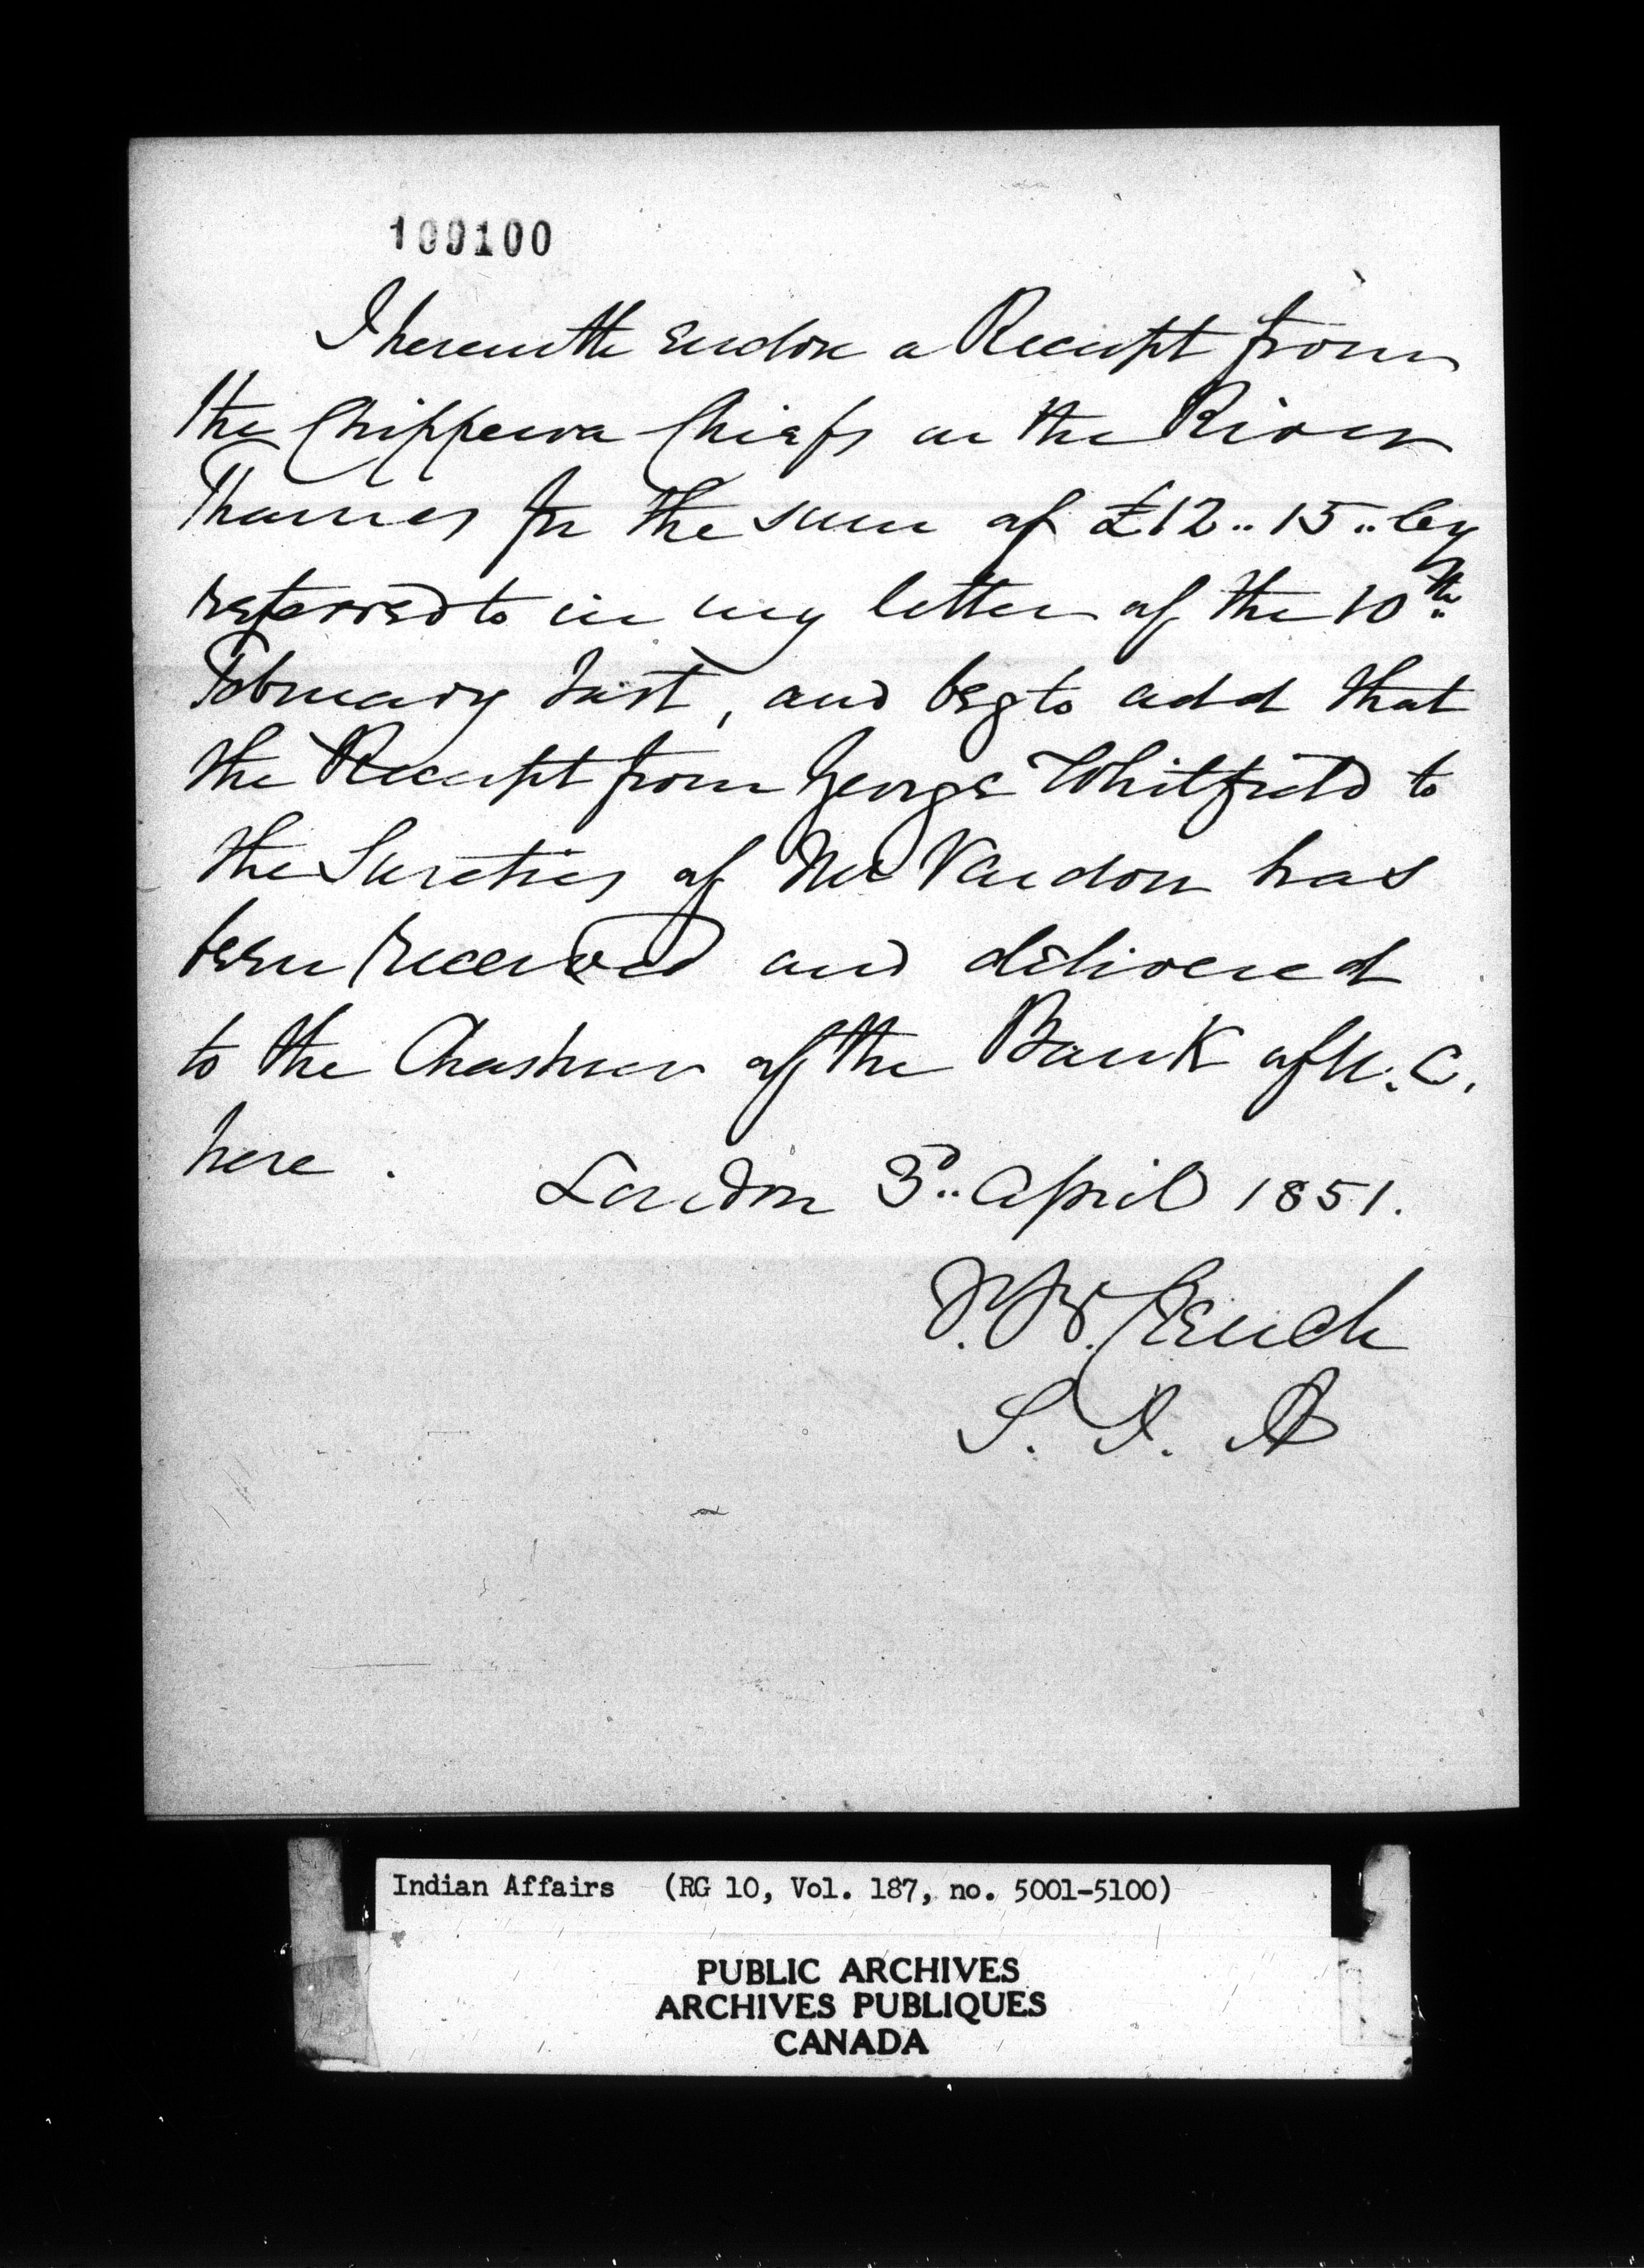 109100
I herewith Enclose a Receipt from
the Chippewa Chiefs on the River
Thames for the sum of £12..15.. Cy
referred to in my letter of the 10th
February last, and beg to add that
the Receipt from George Whitfield to
the Sureties of Mr Vardon has
been received and delivered
to the Cashier of the Bank of U. C.
here.
London 3d.. April 1851.
J. W. Clench
S. I. A
Indian Affairs (RG 10, Vol. 187, no. 5001-5100)
PUBLIC ARCHIVES
ARCHIVES PUBLIQUES
CANADA